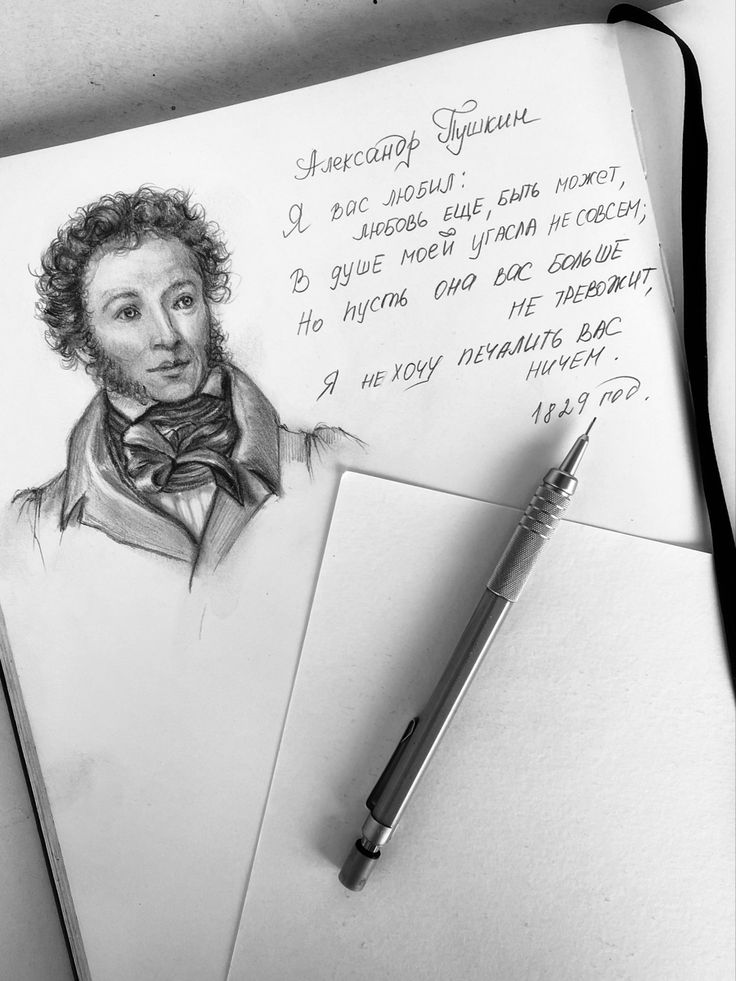 Александр Пушкин
Я вас любил:
любовь еще, быть может,
В душе моей угасла не совсем;
Но пусть она вас больше
не тревожит,
Я не хочу печалить вас
ничем.
1829 год.